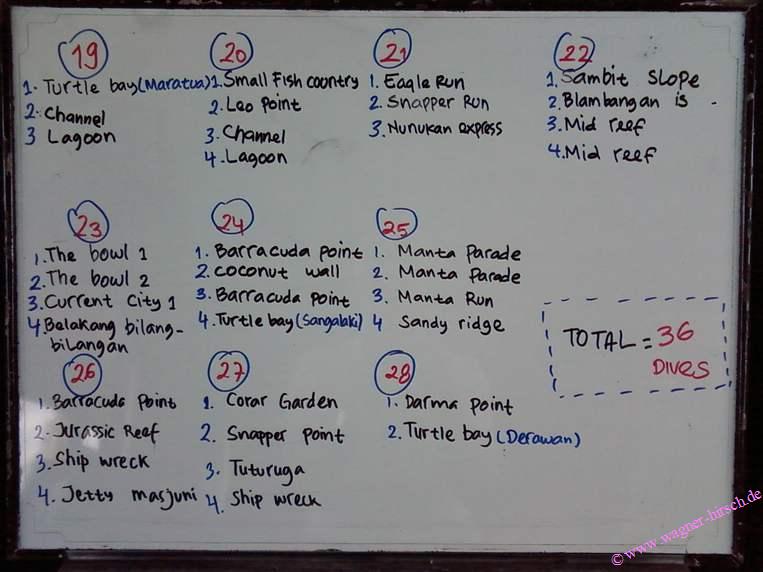 19
1. Turtle bay (Maratua)
2. Channel
3 Lagoon
20
1. Small Fish country
2. Leo Point
3. Channel
4. Lagoon
21
1. Eagle Run
2. Snapper Run
3. Nunukan express
22
1. Sambit Slope
2. Blambangan is
3. Mid reef
4. Mid reef
23
1. The bowl 1
2. The bowl 2
3. Current City 1
4. Belakang bilang-
bilangan
24
1. Barracuda point
2. coconut wall
3. Barracuda Point
4. Turtle bay (Sangalaki)
25
1. Manta Parade
2. Manta Parade
3. Manta Run
4 Sandy ridge
TOTAL = 36
DIVES
26
1. Barracuda Point
2. Jurassic Reef
3. Ship wreck
4. Jetty masjuni
27
1. Corar Garden
2. Snapper point
3. Tuturuga
4. Ship wreck
28
1. Darma point
2. Turtle bay (Derawan)
© www.wagner-hirsch.de